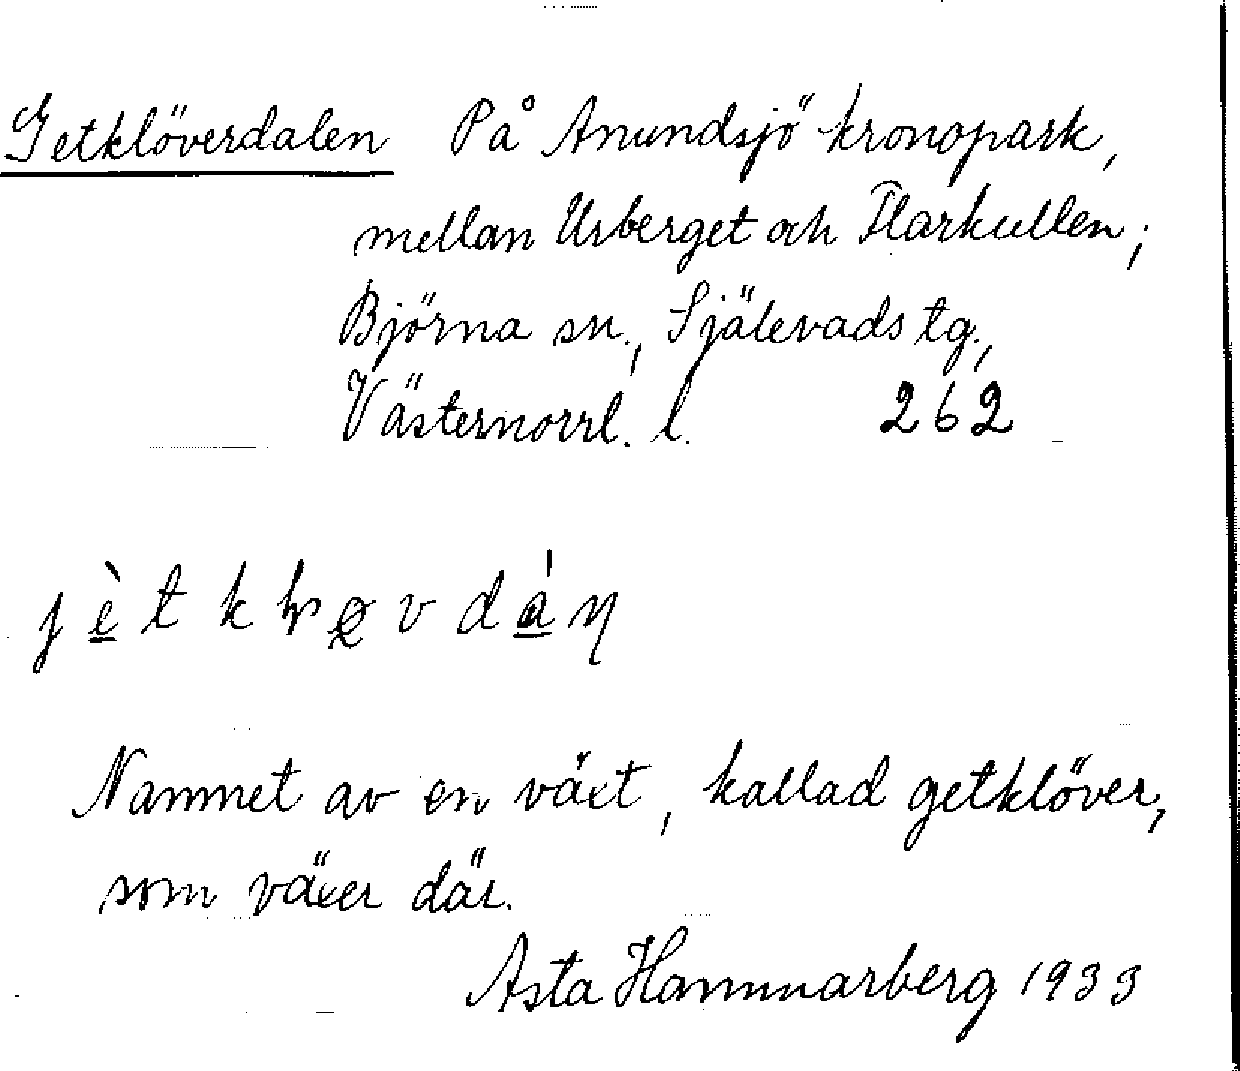 Getklöverdalen På Anundsjö kronopark,
mellan Urberget och Flarkullen;
Björna sn., Själevads tg.,
Västernorrl. l. 262
Namnet av en växt, kallad getklöver,
som växer där.
Asta Hammarberg 1933